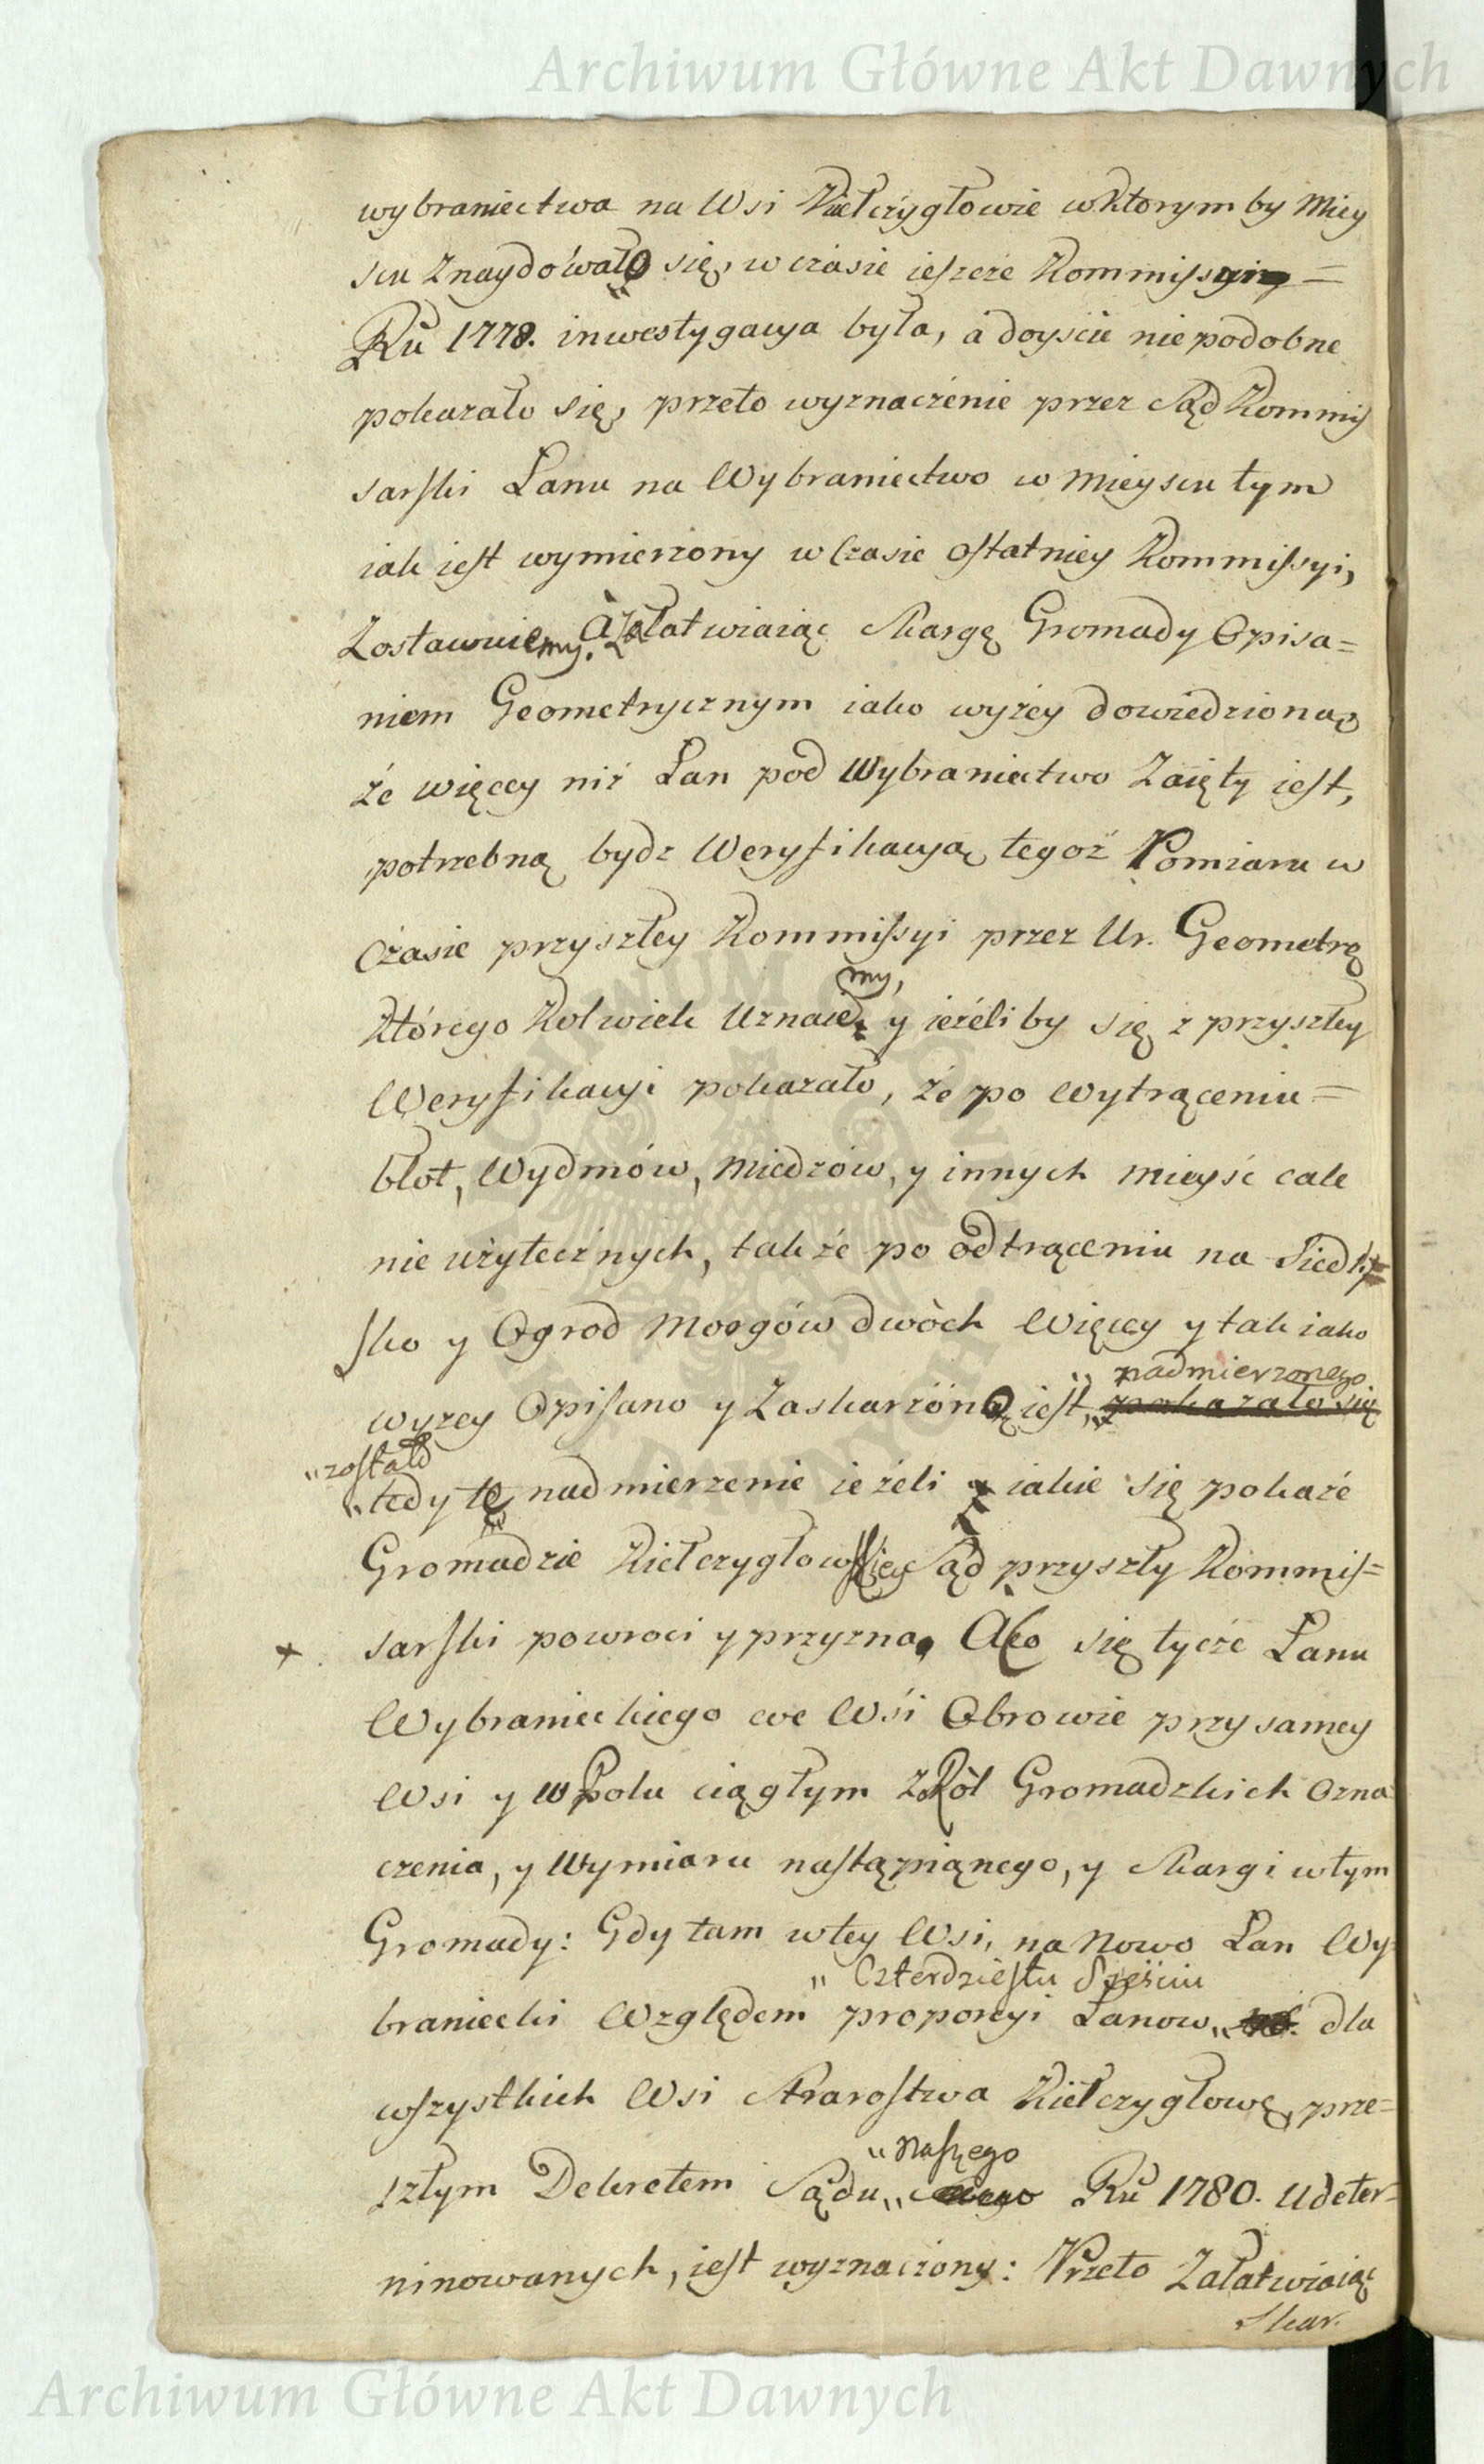 Archiwum Główne Akt Dawnych
wybraniectwa na Wsi Kiełczygłowie wktorym by Miey
scu Znaydowało się, w czasie ieszcze Kommissyi =
Ru 1778. inwestygacya była, á doyscie niepodobne
pokazało się, przeto wyznaczenie przez Sąd Kommis
sarski Łanu na Wybraniectwo w Mieyscu tym
iak iest wymierzony w Czasie ostatniey Kommissyi,
Zostawuiemy. A załatwiaiąc Skargę Gromady Opisa=
niem Geometrycznym iako wyżey dowiedzioną
że więcey niż Łan pod Wybraniectwo Zaięty iest,
potrzebną bydz Weryfikacyą tegoż Pomiaru w
Czasie przyszłey Kommissyi przez Ur. Geometrę
my,
Którego Kolwiek Uznaie y ieżeliby się z przyszłey
Weryfikacyi pokazało, że po Wytrąceniu =
błot, Wydmów, Miedzów, y innych mieysc cale
nie użytecznych, także po odtrąceniu na Siedli=
sko y Ogrod Morgów dwóch Więcey y tak iako
" nadmierzonego
wyzey Opisano y Zaskarżóno iest, " pokazało się
" zostało
" tedy te nadmierzenie ieżeli iakie się pokaże
Gromadzie Kiełczygłowskiey Sąd przyszły Kommis=
+ sarski powroci y przyzna, A co się tycze Łanu
Wybranieckiego we Wsi Obrowie przy samey
Wsi y w Polu ciągłym z Rół Gromadzkich Ozna
czenia, y Wymiaru nastąpiąnego, y Skargi wtym
Gromady: Gdy tam wtey Wsi, na Nowo Łan Wy
" Czterdziestu Sześciu
braniecki Względem proporcyi Łanow " dla
wszystkich Wsi Starostwa Kiełczygłow prze=
" naszego
szłym Dekretem Sądu " Ru 1780. Udeter=
ninowanych, iest wyznaczony: Przeto Załatwiaiąc
Skar.
Archiwum Główne Akt Dawnych